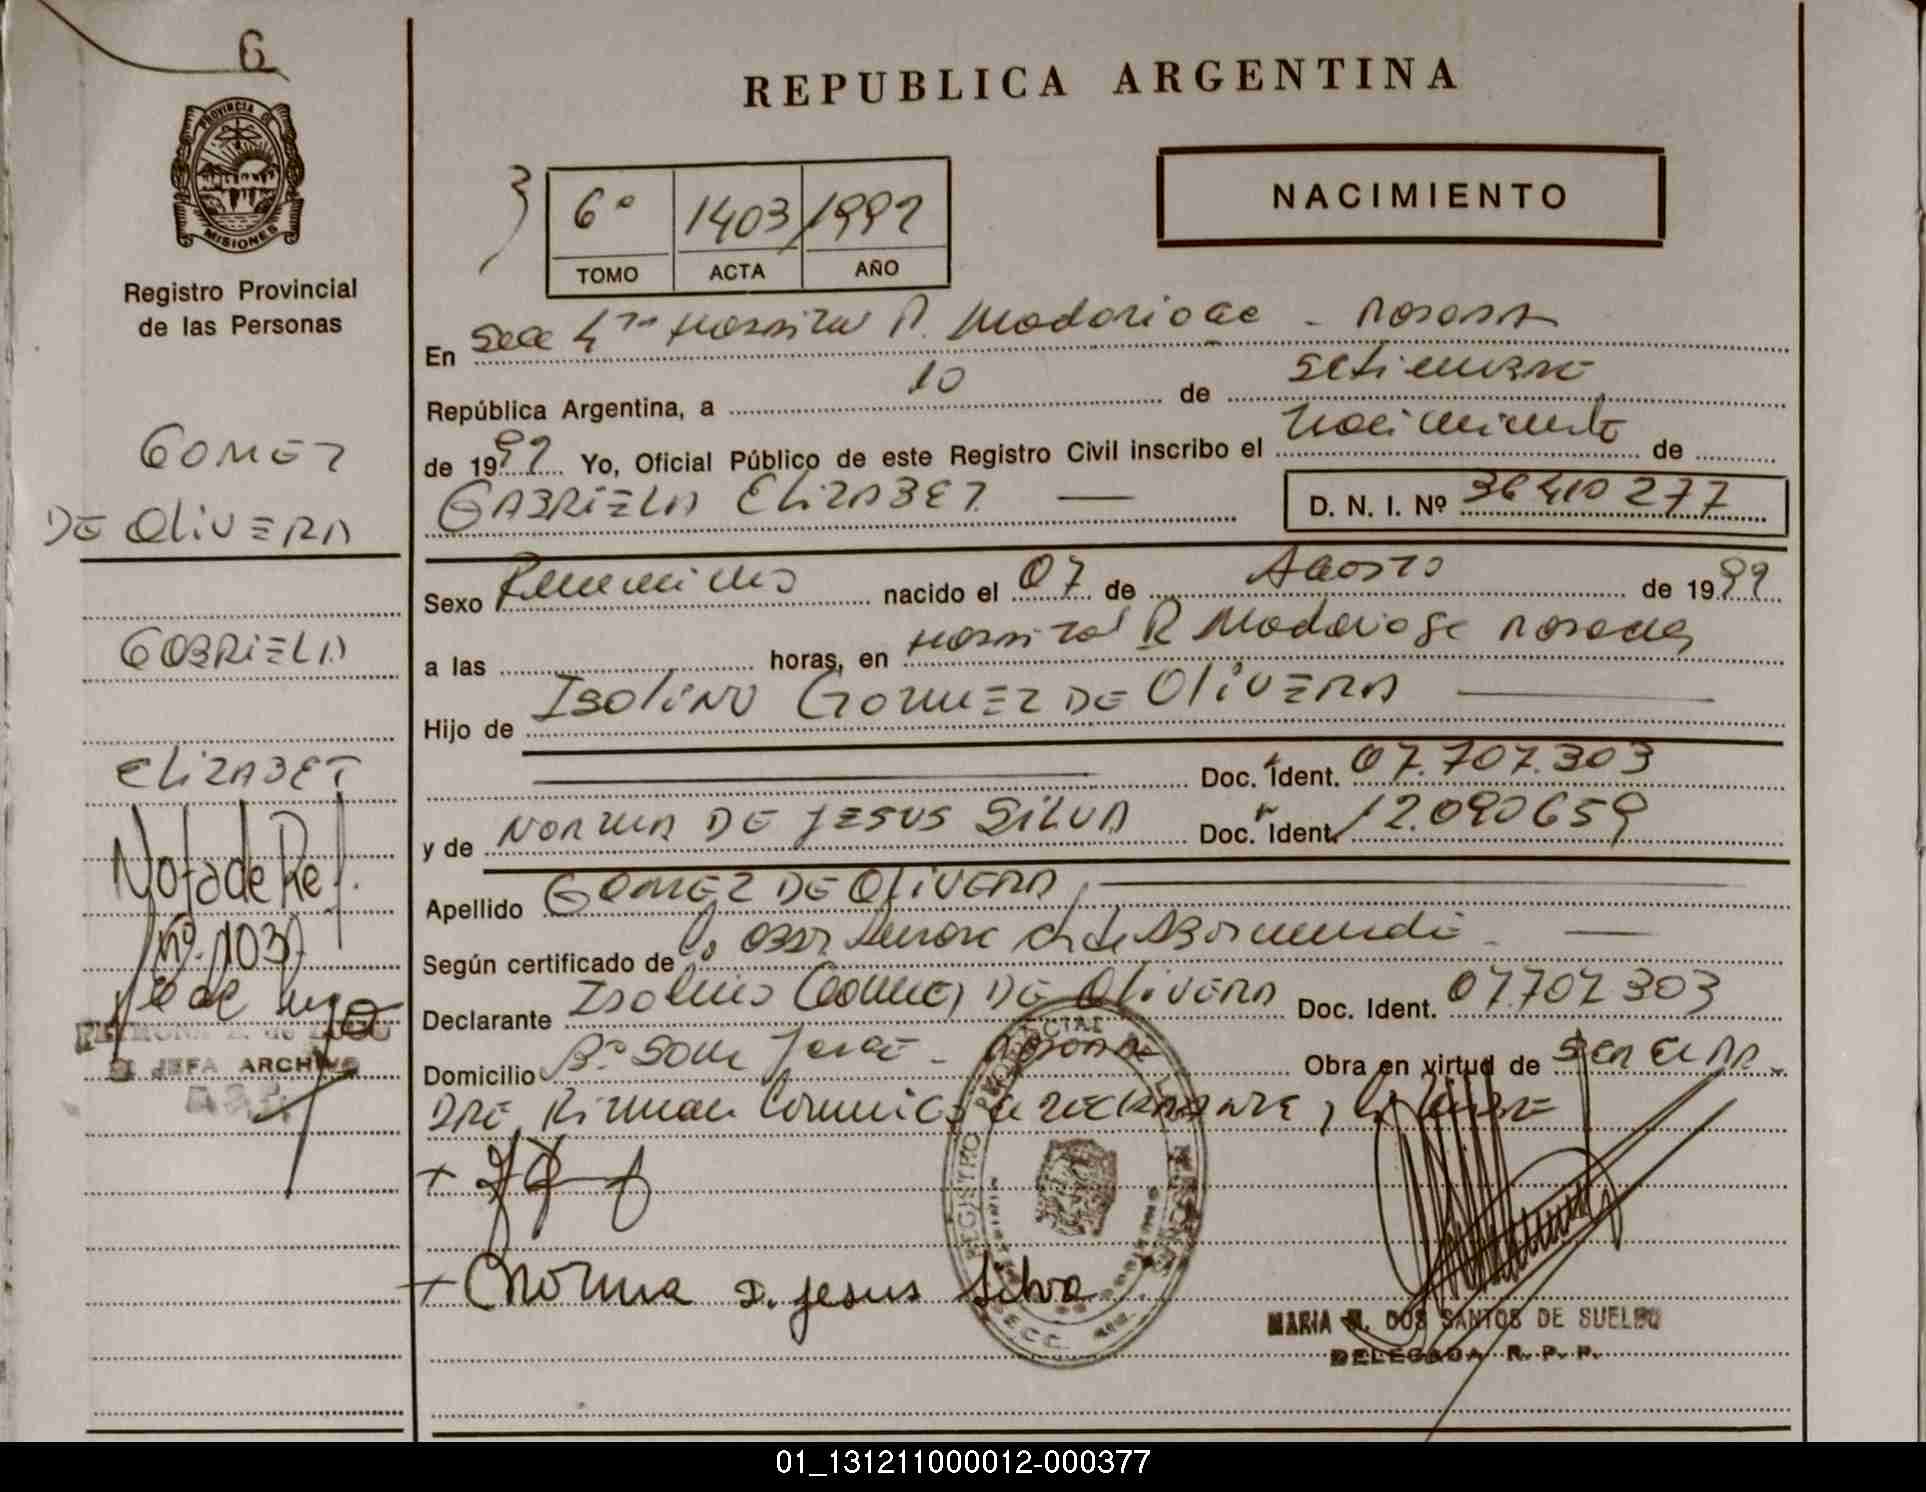 6
PROVINCIA DE
MISIONES
Registro Provincial
de las Personas
GOMEZ
DE OLIVERA
GABRIELA
ELIZABET
Nota de Ref.
Nº. 1037
JEFA ARCHIVO
REPUBLICA ARGENTINA
NACIMIENTO
6º 1403/1992
TOMO ACTA AÑO
En Secc 4ta Hospital R. Madariaga - Posadas
República Argentina, a 10 de setiembre
de 1992 Yo, Oficial Público de este Registro Civil inscribo el Nacimiento de
GABRIELA ELIZABET D. N. I. Nº 36410277
Sexo Femenino nacido el 07 de Agosto de 1992
a las horas, en Hospital R Madariaga Posadas
Hijo de ISOLINO GOMEZ DE OLIVERA
Doc. Ident. 07.707.303
y de NORMA DE JESUS SILVA Doc. Ident. 12.090659
Apellido GOMEZ DE OLIVERA
Según certificado de la Obst
Declarante Isolino Gomez DE OliVERA Doc. Ident. 07707303
Domicilio Bº San Jorge - Posadas Obra en virtud de
DRE, Firman Conmigo el DECLARANTE, la
+
+ Norma D. Jesus Silva
MARIA DOS SANTOS DE SUELDO
DELEGADA R. P. P.
01_131211000012-000377